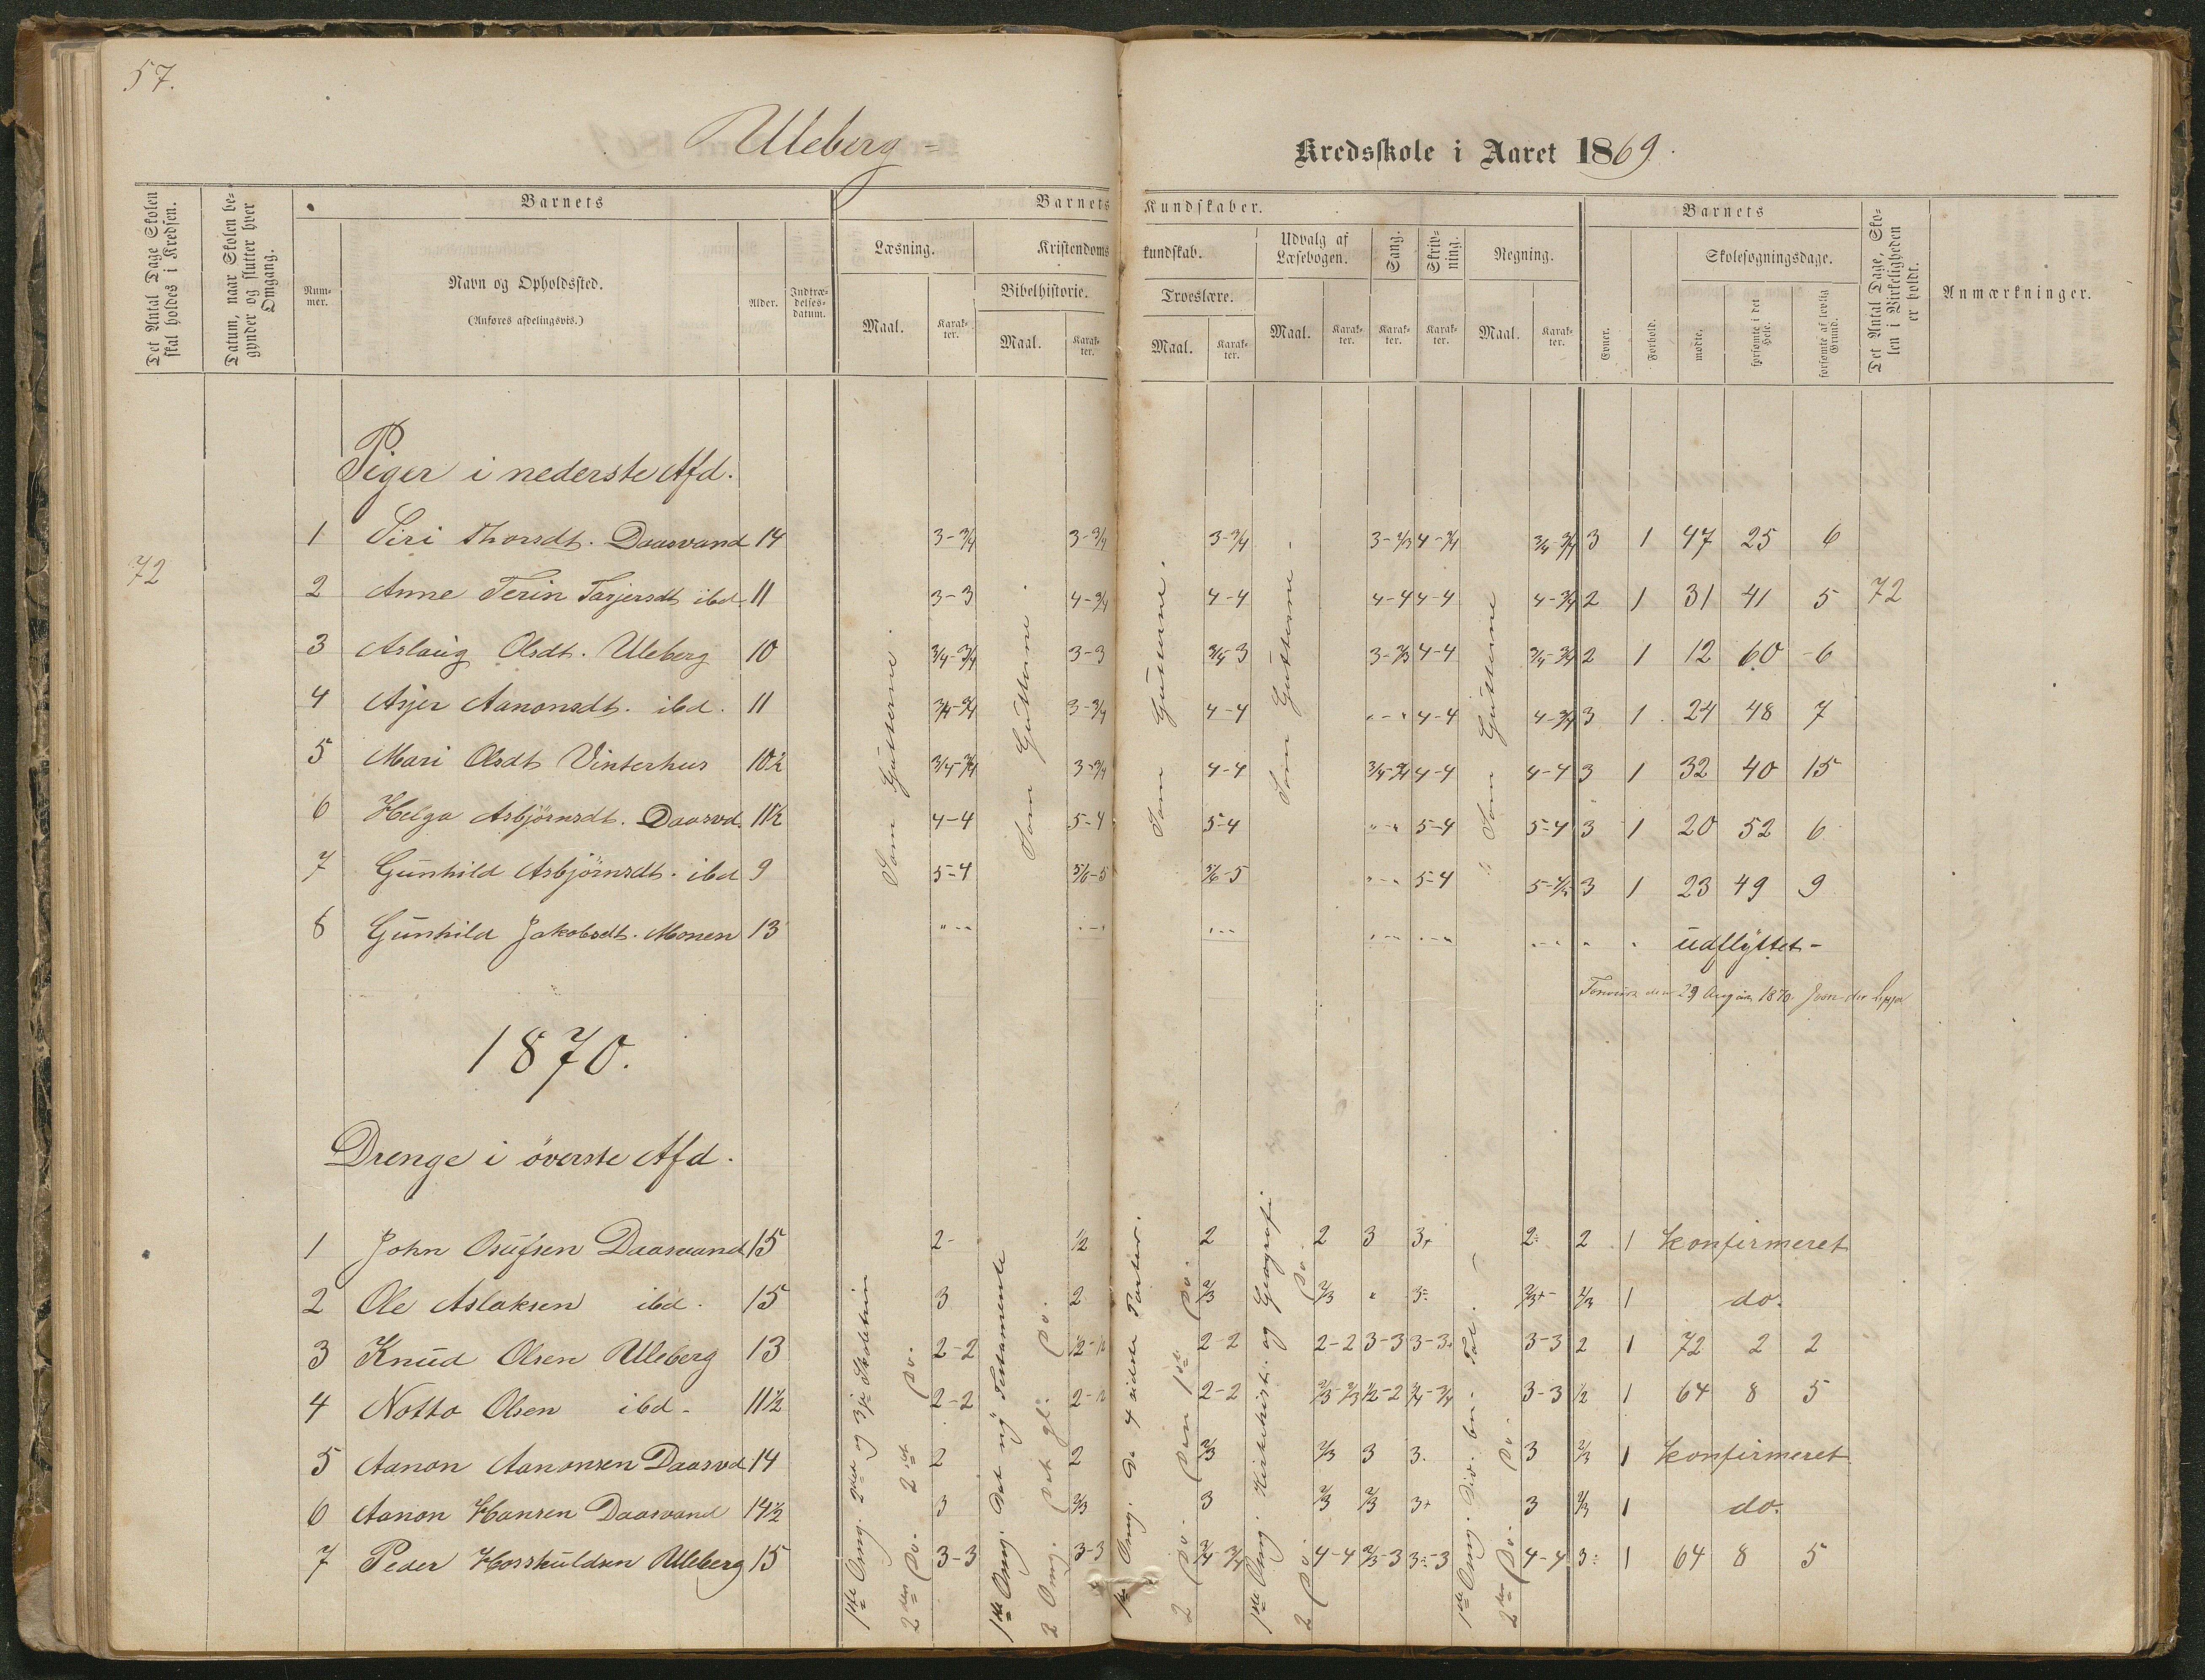 57.
Uleberg -
Kredsskole i Aaret 1869.
Det Antal Dage Skolen skal holdes i Kredsen.
Datum, naar Skolen begynder og slutter hver Omgang.
Barnets
Nummer.
Navn og Opholdssted.
(Anføres afdelingsvis.)
Alder.
Indtrædelsesdatum.
Barnets Kundskaber.
Læsning.
Maal.
Karakter.
Kristendomskundskab.
Bibelhistorie.
Maal.
Karakter.
Troeslære.
Maal.
Karakter.
Udvalg af Læsebogen.
Maal.
Karakter.
Sang.
Karakter.
Skrivning.
Karakter.
Regning.
Maal.
Karakter.
Barnets
Evner.
Forhold.
Skolesøgningsdage.
mødte.
forsømte i det Hele.
forsømte af lovlig Grund.
Det Antal Dage, Skolen i Virkeligheden er holdt.
Anmærkninger.
Piger i nederste Afd.
72
Som Gutterne.
Som Gutterne.
Som Gutterne.
Som Gutterne -
Som Gutterne
72
1 Siri Thorsdt. Daasvand 14 3-3/4 3-3/4 3-3/4 3-2/3 4-3/4 3/4-3/4 3 1 47 25 6
2 Anne Terin Tarjersdt ibd 11 3-3 4-3/4 4-4 4-4 4-4 4-3/4 2 1 31 41 5
3 Aslaug Olsdt. Uleberg 10 3/4-3/4 3-3 3/4-3 3-2/3 4-4 3/4-3/4 2 1 12 60 -6
4 Asjer Aanonsdt. ibd. 11 3/4-3/4 3-3/4 4-4 "-" 4-4 4-3/4 3 1 24 48 7
5 Mari Olsdt Vinterhus 10½ 3/4-3/4 3-3/4 4-4 3/4-3/4 4-4 4-4 3 1 32 40 15
6 Helga Asbjørnsdt. Daasvd. 11½ 4-4 5-4 5-4 "-" 5-4 5-4 3 1 20 52 6
7 Gunhild Asbjørnsdt. ibd 9 5-4 5/6-5 5/6-5 "-" 5-4 5-4/5 3 1 23 49 9
8 Gunhild Jakobsdt. Monen 13 "-" "-" "-" "-" "-" "-" " " udflyttet -
den 29 August 1870.
1870.
Drenge i øverste Afd.
1ste Omg. 2det og 3je Skoletrin
2den Do. 2det Do.
1ste Omg. Det ny Testamente
2 Omg. Det gl. Do.
1ste Omg. De 4 sidste Parter.
2 Do. Den 1ste Do.
1ste Omg. Kirkehist. og Geografi
2 Do. Do.
1ste Omg. Div. bn. Tal.
2den Do. Do.
1 John Osufsen Daasvand 15 2- ½ 2 2 3 3+ 2÷ 2 1 konfirmeret
2 Ole Aslaksen ibd. 15 3 2 2/3 2/3 " 3÷ 2/3+ 2/3 1 do.
3 Knud Olsen Uleberg 13 2-2 ½-½ 2-2 2-2 3-3 3-3+ 3-3 2 1 72 2 2
4 Notto Olsen ibd - 11½ 2-2 2-½ 2-2 2/3-2/3 ½-2 3/4-3/4 3-3 ½ 1 64 8 5
5 Aanon Aanonsen Daasvd 14 2 2 2/3 2/3 3 3. 3 2/3 1 konfirmeret
6 Aanon Hansen Daasvand 14½ 3 2/3 3 2/3 2/3 3+ 3 2/3 1 do.
7 Peder Horskuldsen Uleberg 15 3-3 3-3 3/4-3/4 4-4 2/3-3 3÷-3 4-4 3÷ 1 64 8 5